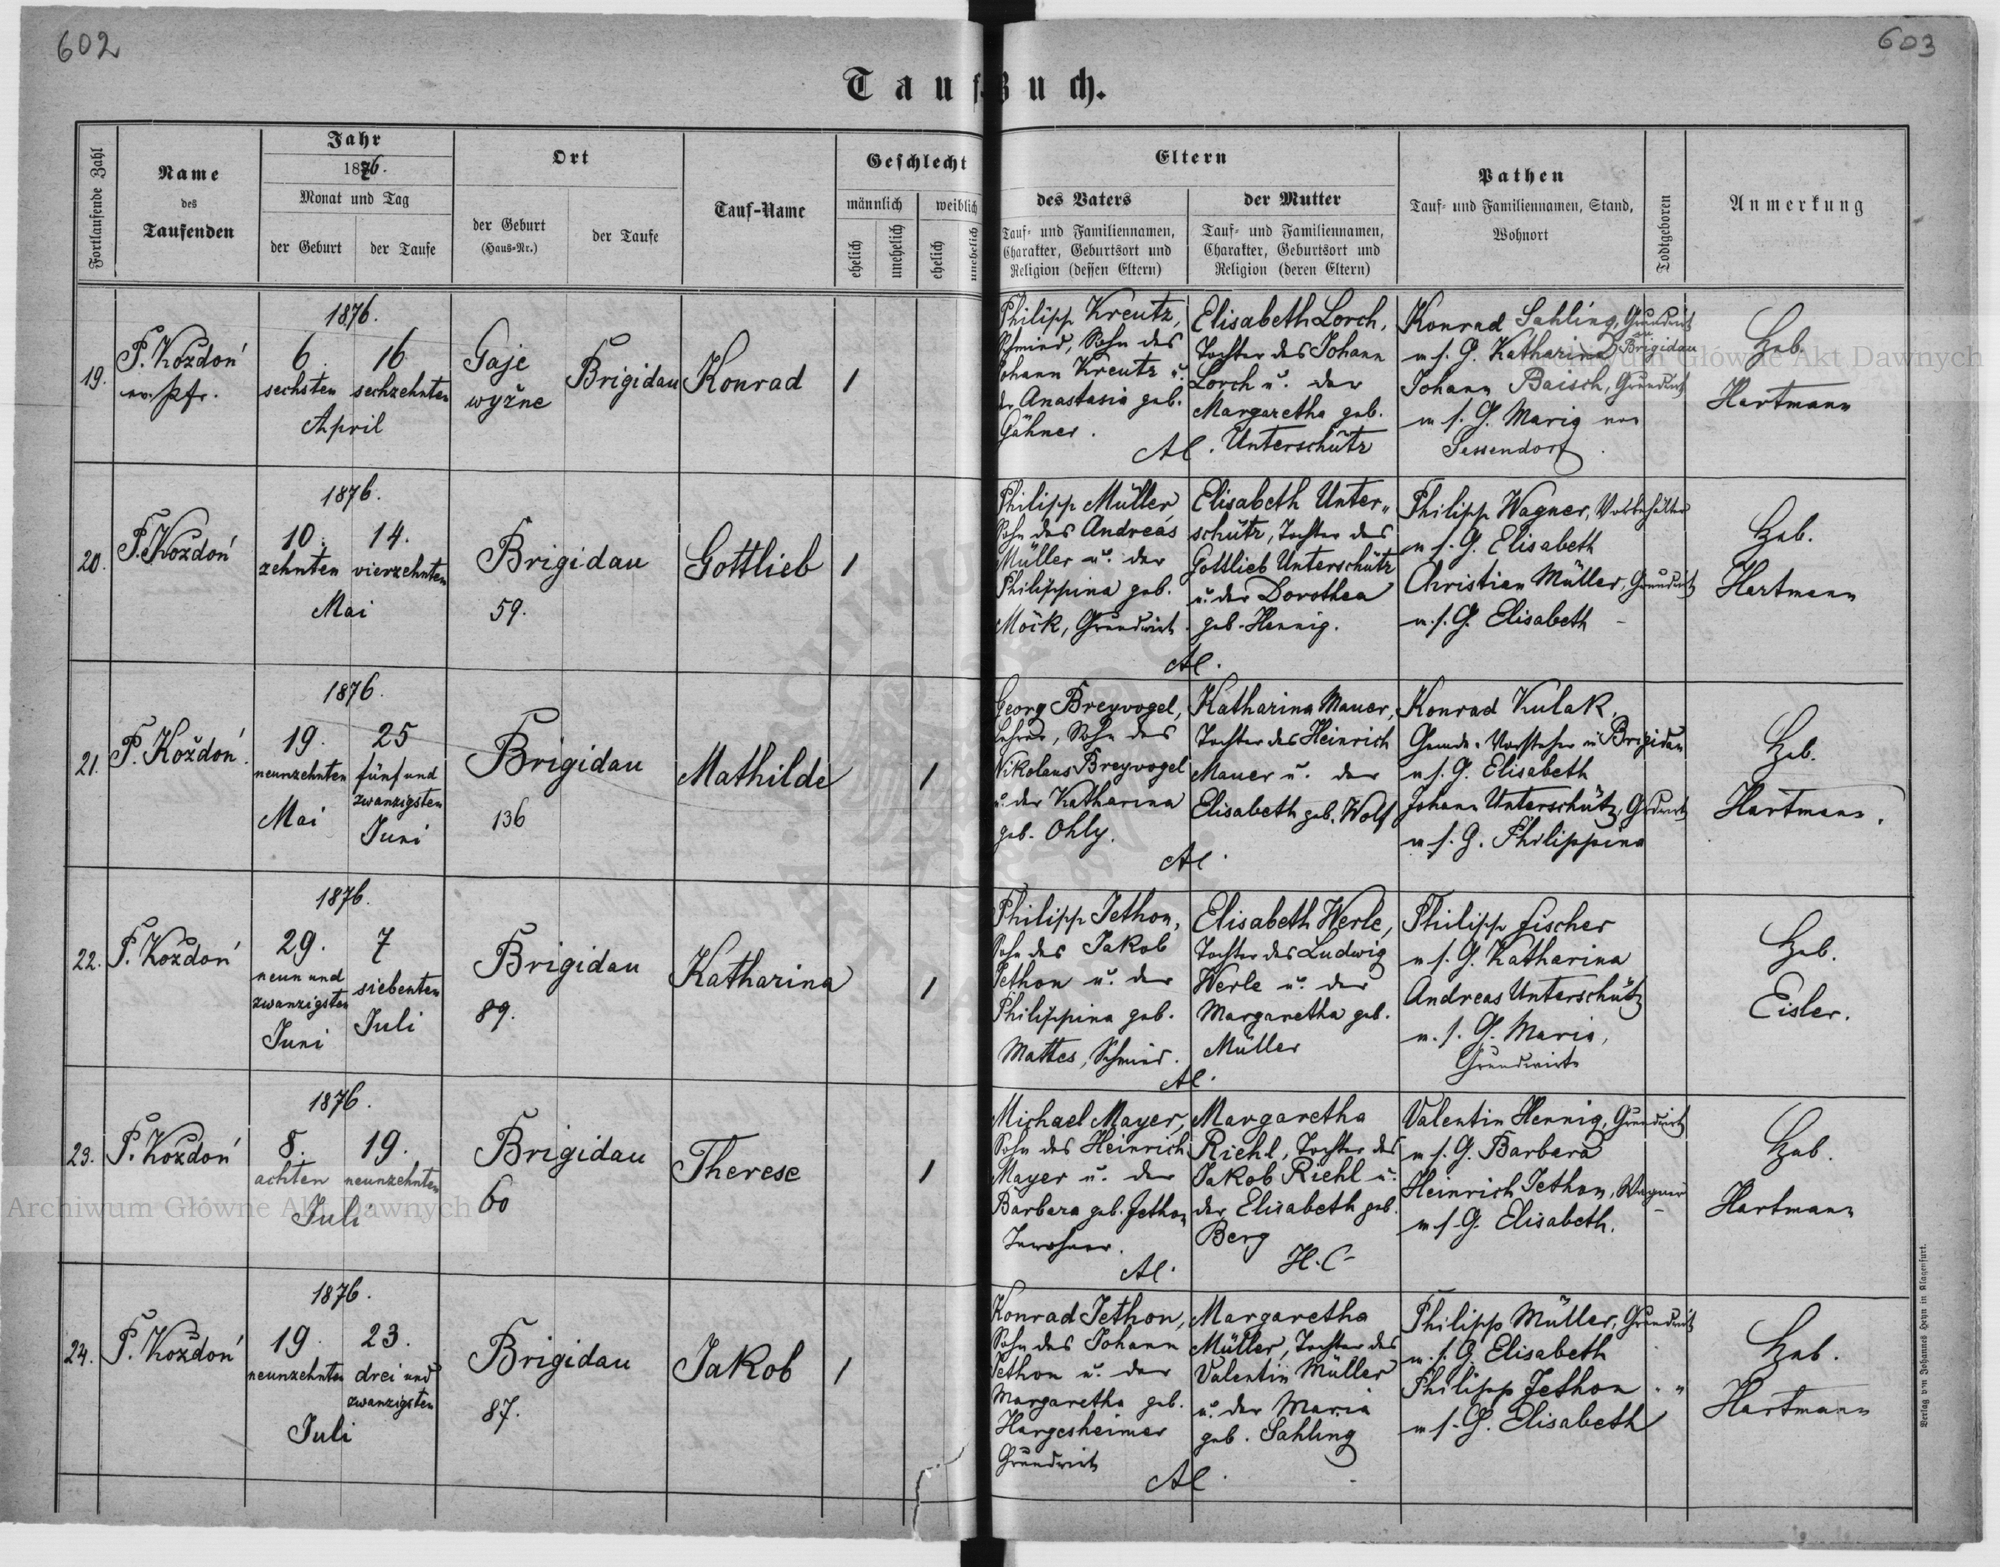 602
603
Tauf-Buch.
Fortlaufende Zahl
Name
des
Taufenden
Jahr
1876.
Monat und Tag
der Geburt
der Taufe
Ort
der Geburt
(Haus-Nr.)
der Taufe
Tauf-Name
Geschlecht
männlich
weiblich
ehelich
unehelich
ehelich
unehelich
Eltern
des Vaters
Tauf- und Familiennamen,
Charakter, Geburtsort und
Religion (dessen Eltern)
der Mutter
Tauf- und Familiennamen,
Charakter, Geburtsort und
Religion (deren Eltern)
Pathen
Tauf- und Familiennamen, Stand,
Wohnort
Todtgeboren
Anmerkung
19.
P. Koždoń
ev. Pfr.
1876.
6.
sechsten
16
sechzehnten
April
Gaje
wyžne
Brigidau
Konrad
1
Philipp Kreutz,
Schmied, Sohn des
Johann Kreutz u.
der Anastasia geb.
Gähner.
Elisabeth Lorch,
Tochter des Johann
Lorch u. der
Margaretha geb.
Unterschütz
Al.
Konrad Sahling, Grundwirt
m s. G. Katharina Brigidau
Johann Baisch, Grundwirt
m s. G. Maria von
Heb.
Hartmann
20.
P. Koždoń
1876.
10.
zehnten
14.
vierzehnten
Mai
Brigidau
59.
Gottlieb
1
Philipp Müller
Sohn des Andreas
Müller u. der
Philippina geb.
Möck, Grundwirt.
Elisabeth Unter„
schütz, Tochter des
Gottlieb Unterschütz
u. der Dorothea
geb. Hennig.
Al.
Philipp Wagner, Vorbehälter
m s. G. Elisabeth
Christian Müller, Grundwirt
m. s. G. Elisabeth
Heb.
Hartmann
21.
P. Koždoń.
1876.
19.
neunzehnten
Mai
25
fünf und
zwanzigsten
Juni
Brigidau
136
Mathilde
1
Georg Breyvogel,
Lehrer, Sohn des
Nikolaus Breyvogel
u. der Katharina
geb. Ohly.
Katharina Mauer,
Tochter des Heinrich
Mauer u. der
Elisabeth geb. Wolf
Al.
Konrad Kulak,
Gemde. Vorsteher in Brigidau
m s. G. Elisabeth
Johann Unterschütz, Grdwirt
m s. G. Philippina
Heb.
Hartmann.
22.
P. Koždoń
1876.
29.
neun und
zwanzigsten
Juni
7
siebenten
Juli
Brigidau
89.
Katharina
1
Philipp Jethon,
Sohn des Jakob
Jethon u. der
Philippina geb.
Mattes, Schmied.
Elisabeth Werle,
Tochter des Ludwig
Werle u. der
Margaretha geb.
Müller
Al.
Philipp Fischer
m s. G. Katharina
Andreas Unterschütz
m. s. G. Maria,
Grundwirte
Heb.
Eisler.
23.
P. Koždoń
1876.
8.
achten
19.
neunzehnten
Juli
Brigidau
60
Therese
1
Michael Mayer,
Sohn des Heinrich
Mayer u. der
Barbara geb. Jethon
Inwohner.
Al.
Margaretha
Riehl, Tochter des
Jakob Riehl u.
der Elisabeth geb.
Berg
H. C
Valentin Hennig, Grundwirt
m s. G. Barbara
Heinrich Jethon, Wagner
m s. G. Elisabeth.
Heb.
Hartmann
24.
P. Koždoń
1876.
19.
neunzehnten
23.
drei und
zwanzigsten
Juli
Brigidau
87.
Jakob
1
Konrad Jethon,
Sohn des Johann
Jethon u. der
Margaretha geb.
Hargesheimer
Grundwirt
Margaretha
Müller, Tochter des
Valentin Müller
u. der Maria
geb. Sahling
Al.
Philipp Müller, Grundwirt
m. s. G. Elisabeth
Philipp Jethon „ „
m s. G. Elisabeth
Heb.
Hartmann
Verlag von Johannes Heyn in Klagenfurt.
Archiwum Główne Akt Dawnych
Archiwum Główne Akt Dawnych